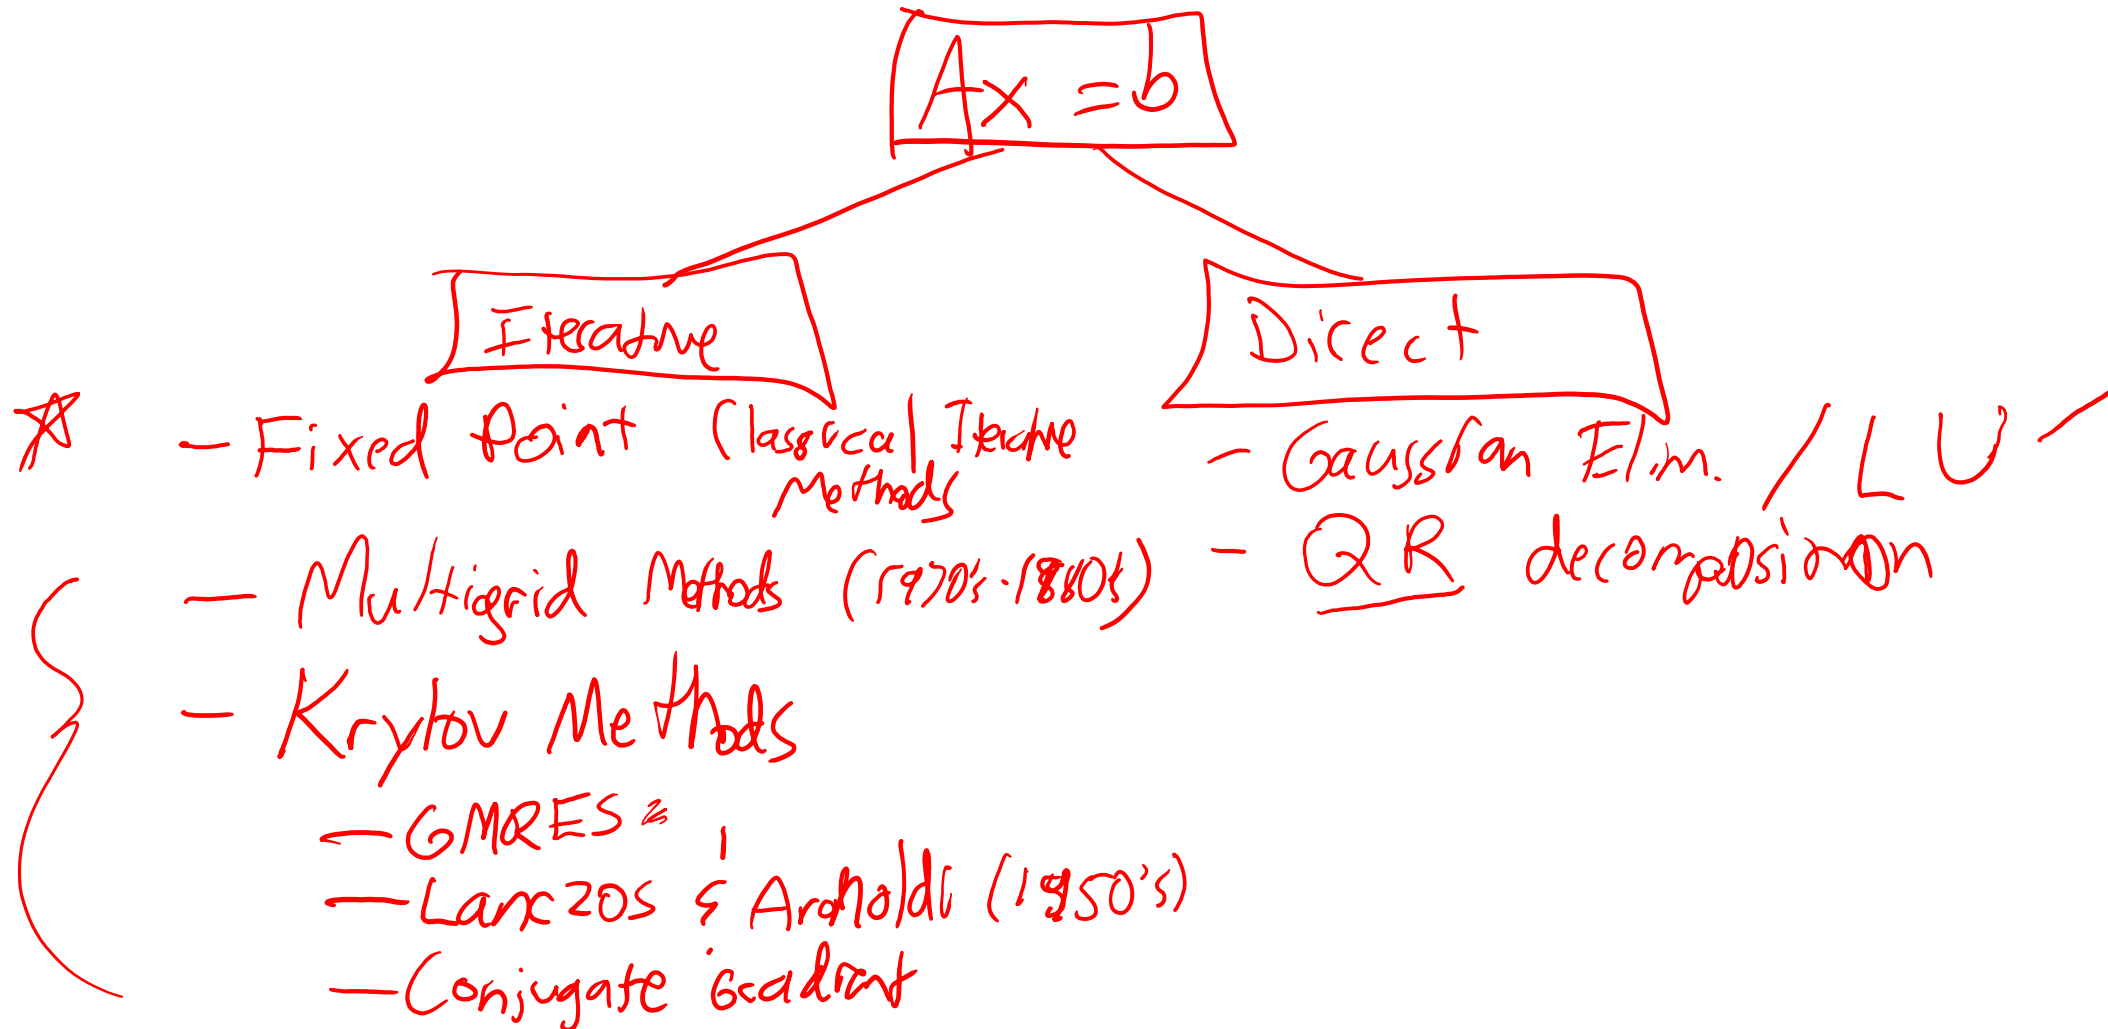 Ax = b
Iterative
Direct
- Fixed Point Classical Iterative
Methods
- Multigrid Methods (1970's-1980's)
- Krylov Methods
- GMRES
- Lanczos & Arnoldi (1950's)
- Conjugate Gradient
- Gaussian Elim. / LU
- QR decomposition